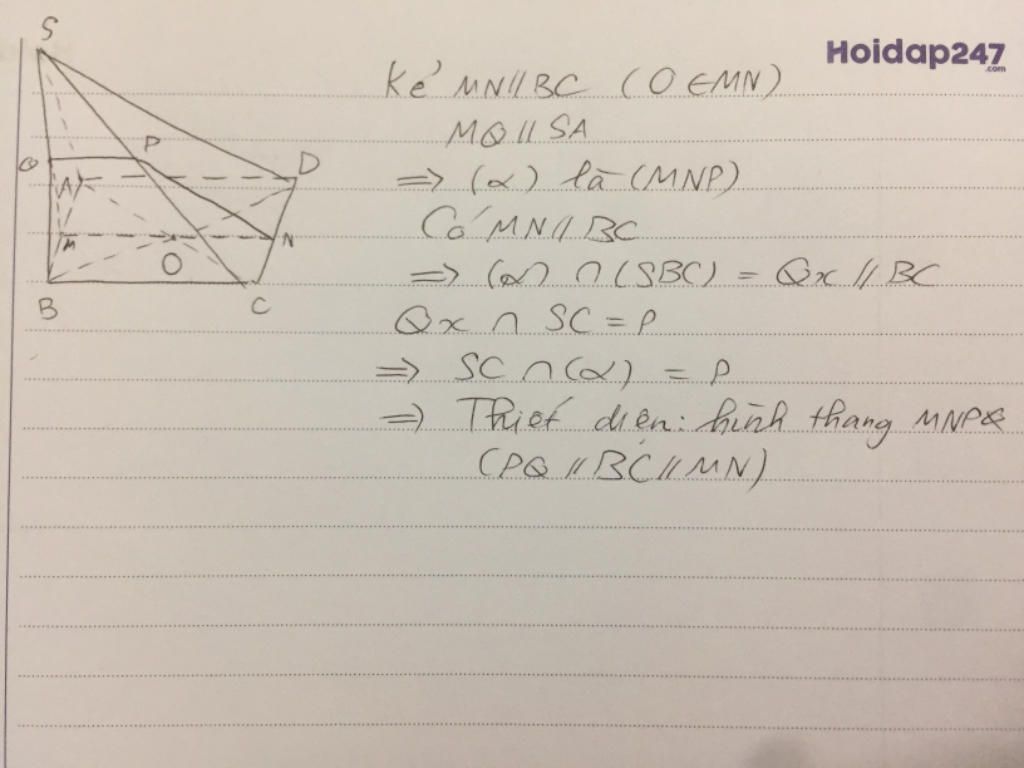 Hoidap247
.com
S
Q
P
A
D
M
N
O
B
C
Kẻ MN // BC (O ∈ MN)
MQ // SA
=> (α) là (MNP)
Có MN // BC
=> (α) ∩ (SBC) = Qx // BC
Qx ∩ SC = P
=> SC ∩ (α) = P
=> Thiết diện: hình thang MNPQ
(PQ // BC // MN)